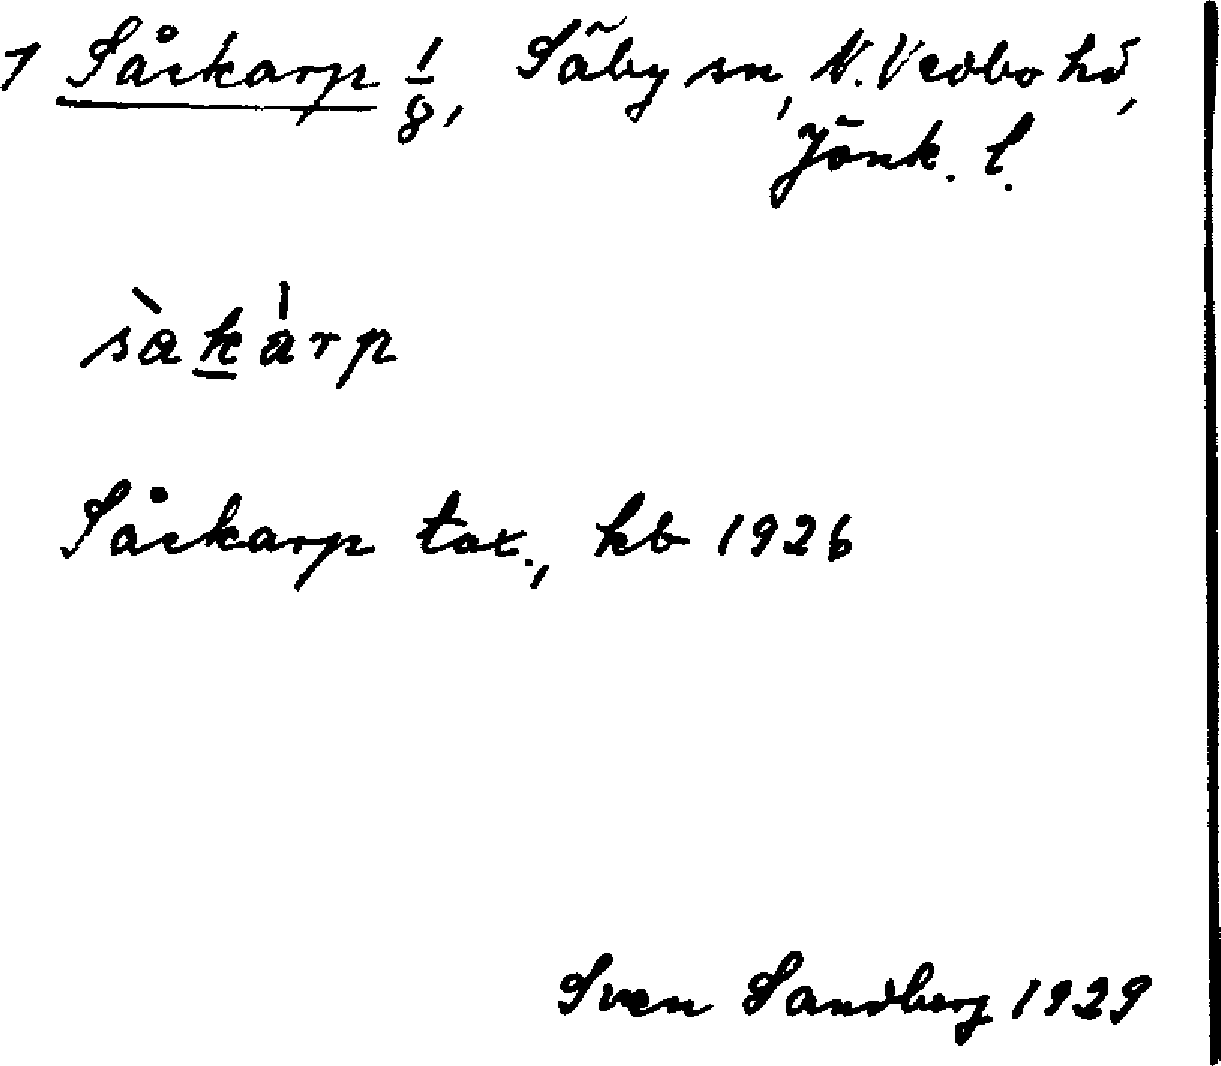 1 Såckarp 1/8, Säby sn, N. Vedbo hd,
Jönk. l.
sàkárp
Såckarp tax., kb 1926
Sven Sandberg 1929